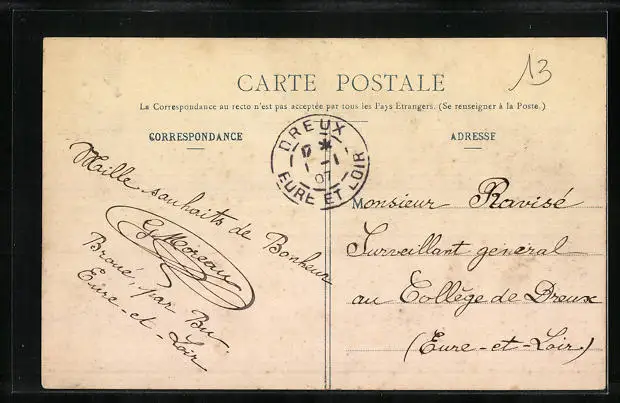 13
CARTE POSTALE
La Correspondance au recto n'est pas acceptée par tous les Pays Etrangers. (Se renseigner à la Poste.)
CORRESPONDANCE
ADRESSE
DREUX
1 - 1
07
EURE ET LOIR
Mille souhaits de Bonheur
G Moreau
Broué, par Bu.
Eure-et-Loir
Monsieur Ravisé
Surveillant général
au Collège de Dreux
(Eure-et-Loir)